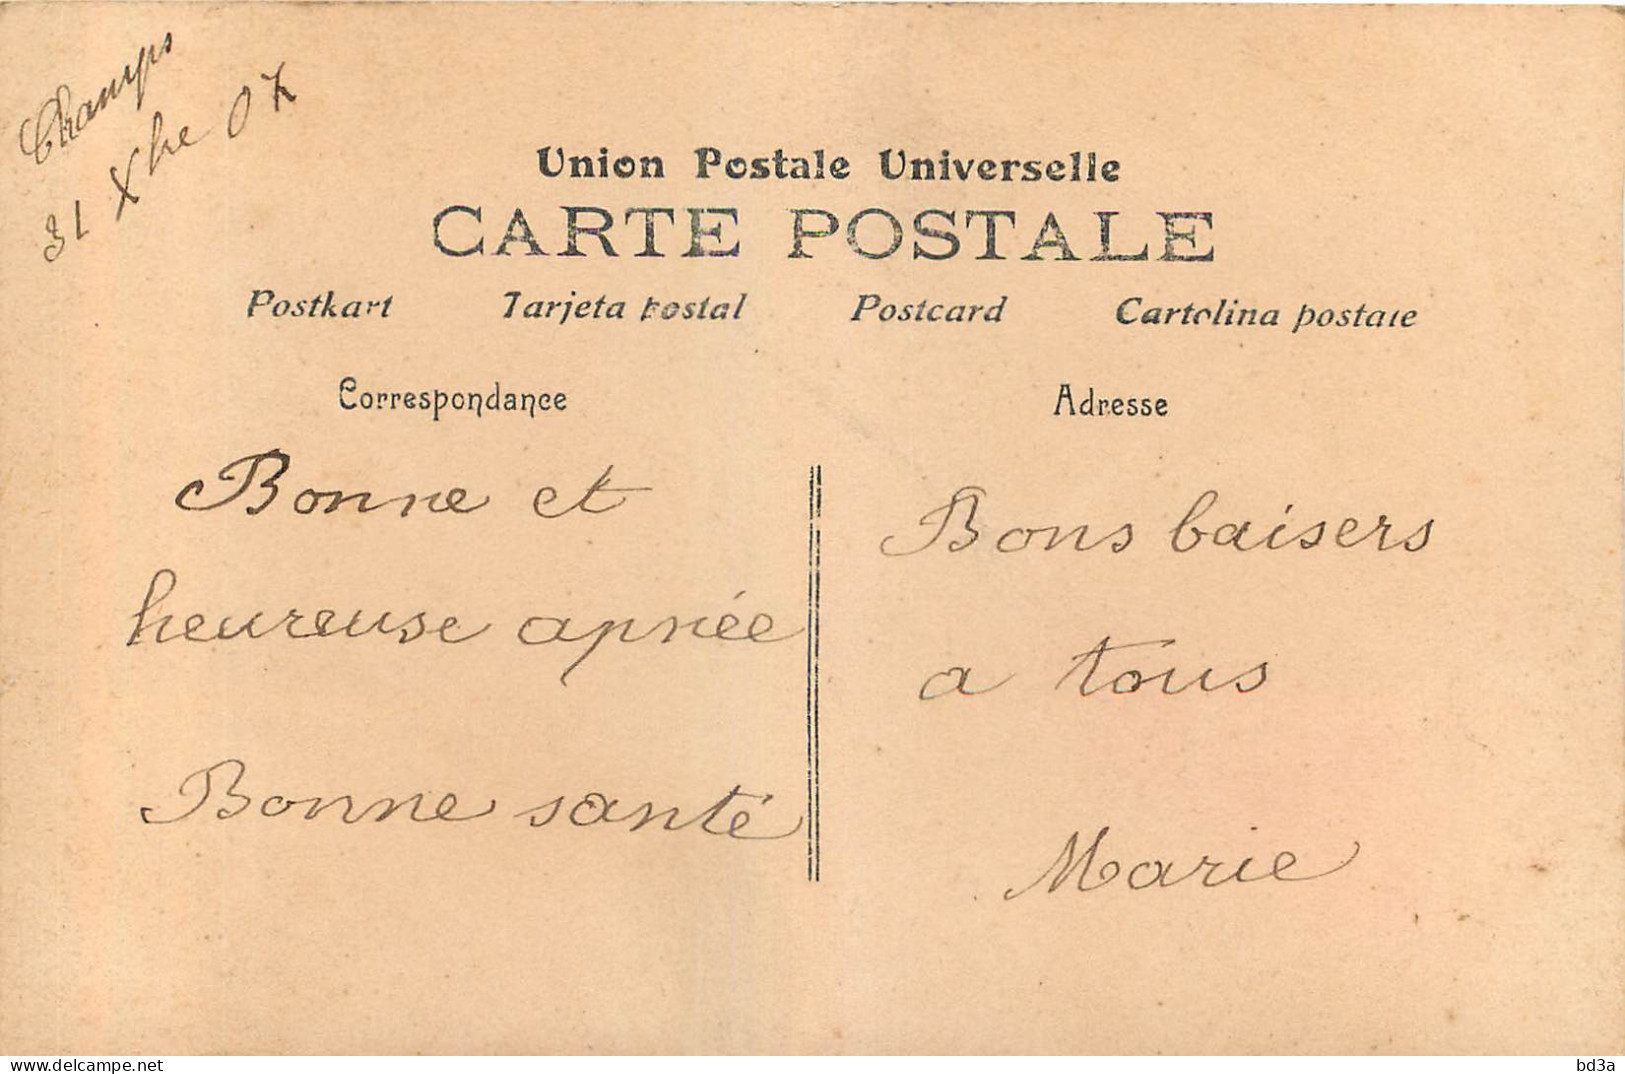 Champs
31 Xbre 07
Union Postale Universelle
CARTE POSTALE
Postkart Tarjeta postal Postcard Cartolina postale
Correspondance
Bonne et
heureuse apnée
Bonne santé
Adresse
Bons baisers
a tous
Marie
delcampe.net
bd3a